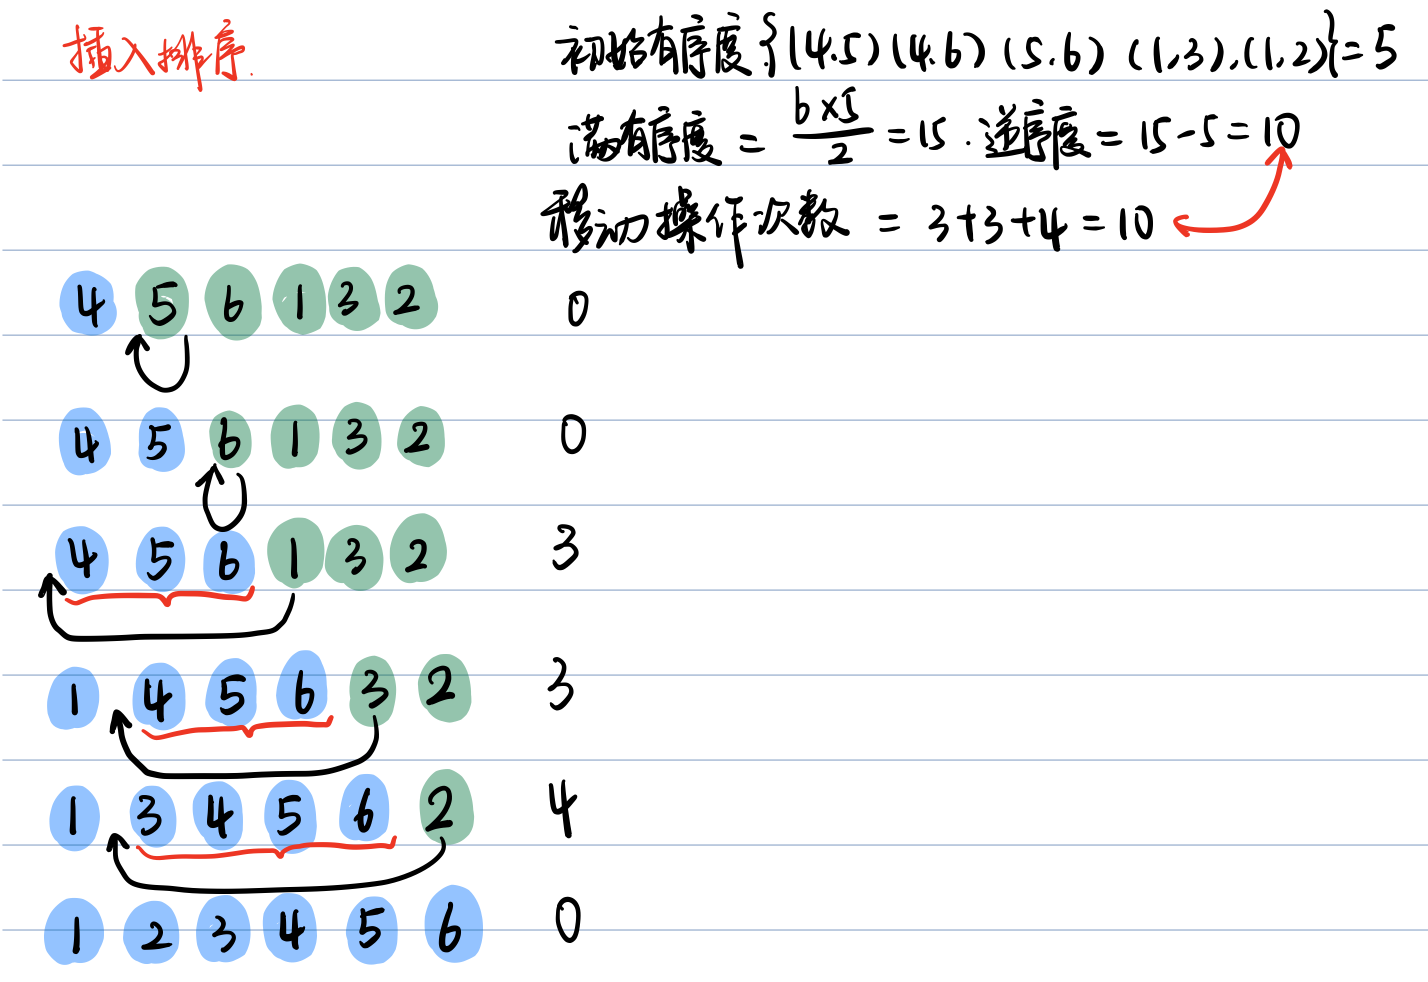 插入排序.
初始有序度{(4.5)(4.6)(5.6)(1,3),(1,2)}=5
满有序度 = 6×5/2 = 15 . 逆序度 = 15-5=10
移动操作次数 = 3+3+4=10
4 5 6 1 3 2 0
4 5 6 1 3 2 0
4 5 6 1 3 2 3
1 4 5 6 3 2 3
1 3 4 5 6 2 4
1 2 3 4 5 6 0